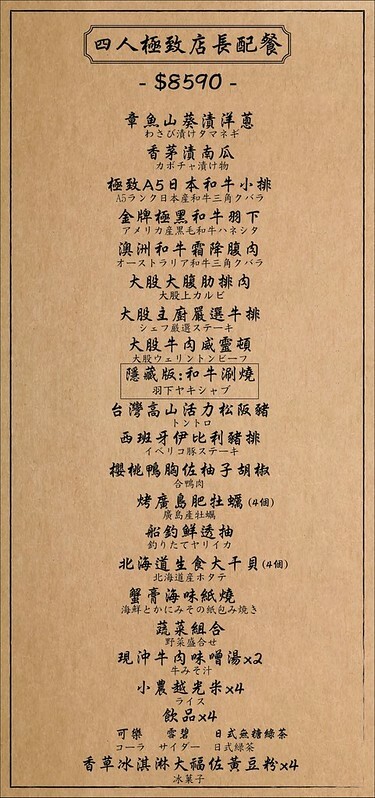 四人極致店長配餐
- $8590 -
章魚山葵漬洋蔥
わさび漬けタマネギ
香茅漬南瓜
カボチャ漬け物
極致A5日本和牛小排
A5ランク日本産和牛三角クバラ
金牌極黑和牛羽下
アメリカ産黒毛和牛ハネシタ
澳洲和牛霜降腹肉
オーストラリア和牛三角クバラ
大股大腹肋排肉
大股上カルビ
大股主廚嚴選牛排
シェフ厳選ステーキ
大股牛肉威靈頓
大股ウェリントンビーフ
隱藏版:和牛涮燒
羽下ヤキシャブ
台灣高山活力松阪豬
トントロ
西班牙伊比利豬排
イベリコ豚ステーキ
櫻桃鴨胸佐柚子胡椒
合鴨肉
烤廣島肥牡蠣(4個)
廣島産牡蠣
船釣鮮透抽
釣りたてヤリイカ
北海道生食大干貝(4個)
北海道産ホタテ
蟹膏海味紙燒
海鮮とかにみその紙包み焼き
蔬菜組合
野菜盛合せ
現沖牛肉味噌湯x2
牛みそ汁
小農越光米x4
ライス
飲品x4
可樂 雪碧 日式無糖綠茶
コーラ サイダー 日式緑茶
香草冰淇淋大福佐黃豆粉x4
冰菓子